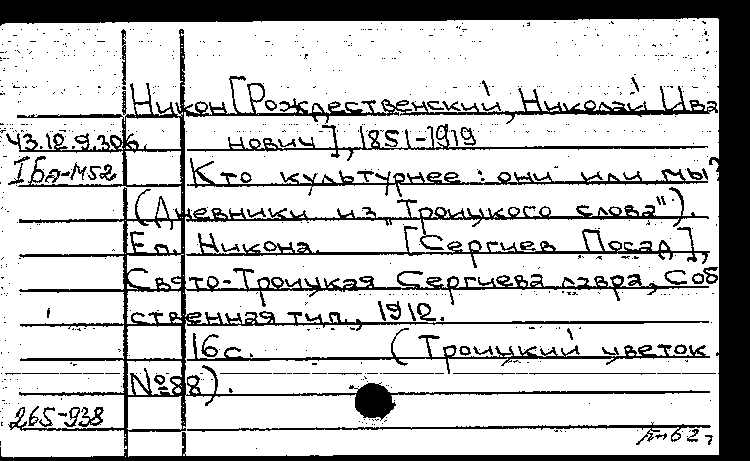 Никон [Рождественский, Николай Ива
43.12.9.306. нович], 1851-1919
IБа-М52 Кто культурнее: они или мы?
(Дневники из „Троицкого слова").
Еп. Никона. [Сергиев Посад],
Свято-Троицкая Сергиева лавра, Соб
ственная тип., 1912.
16с. (Троицкий цветок.
№88).
265-938